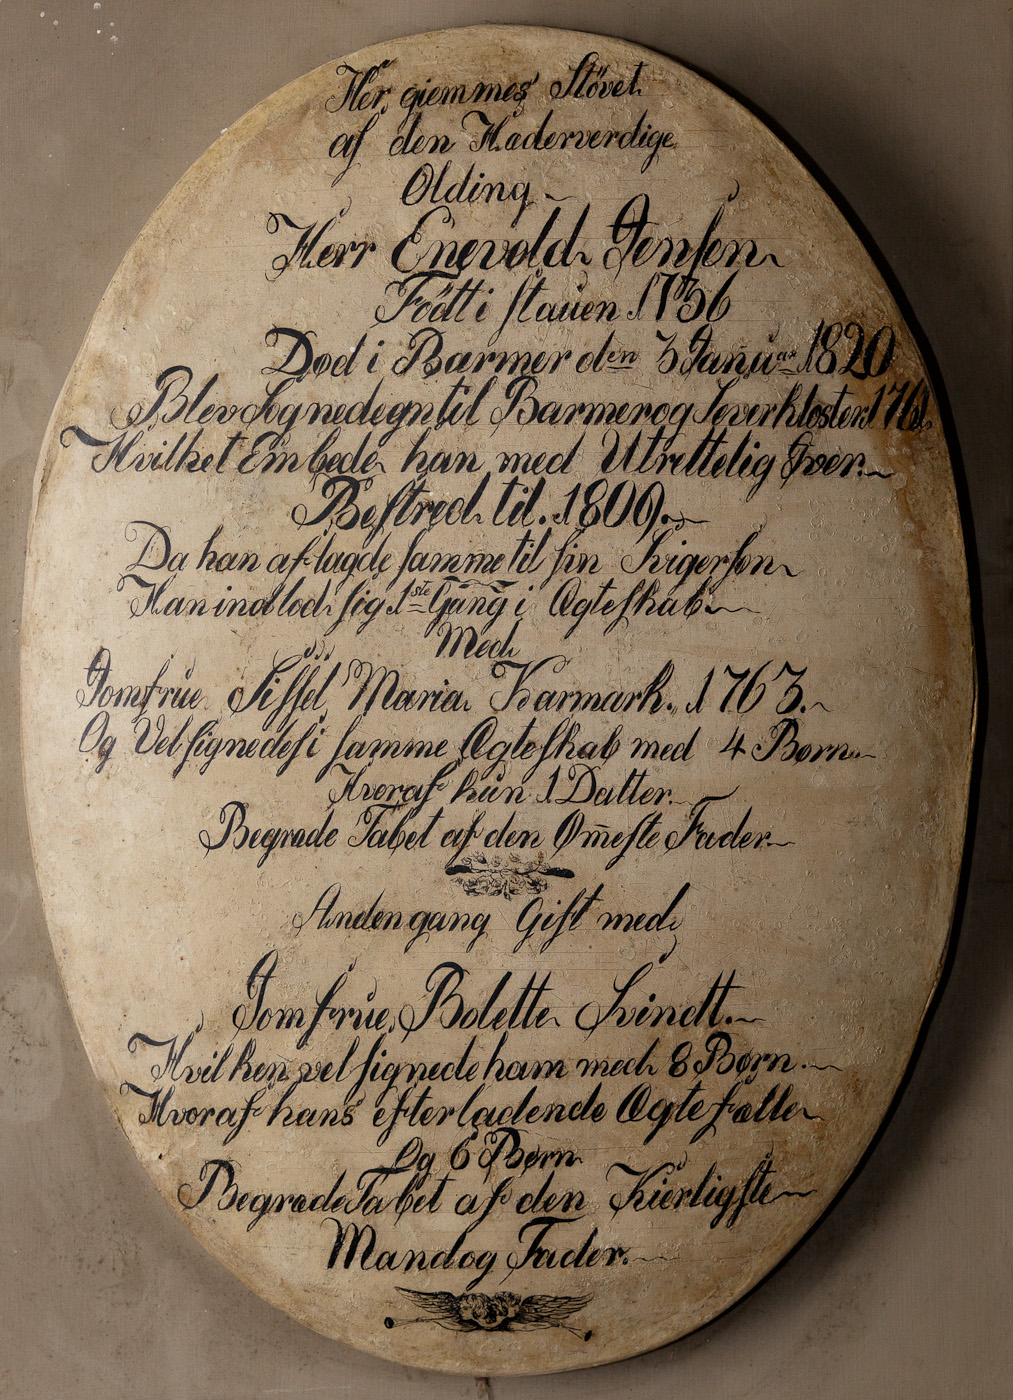 Her giemmes Støvet
af den Haderverdige
Olding
Herr Enevold Jensen
Födt i stauen 1736
Død i Barmer den 3 Januar 1820
Blev Sognedegn til Barmer og Sverkloster
Hvilket Embede han med Utrettelig Iver.
Bestred til. 1809.
Da han aflagde samme til sin Svigersøn
Han indlod sig 1ste Gang i Ægteskab
Med
Jomfrue Sissel Maria Karmark. 1763.
Og Velsignedes i samme Ægteskab med 4 Børn
Hvoraf kun 1 Datter
Begrade Tabet af den Øm̄este Fader
Anden gang Gift med
Jomfrue Bolette Svindt.
Hvilken velsignede ham med 8 Børn.
Hvoraf hans efterladende Ægtefælle
Og 6 Børn
Begræde Tabet af den Kierligste
Mand og Fader.